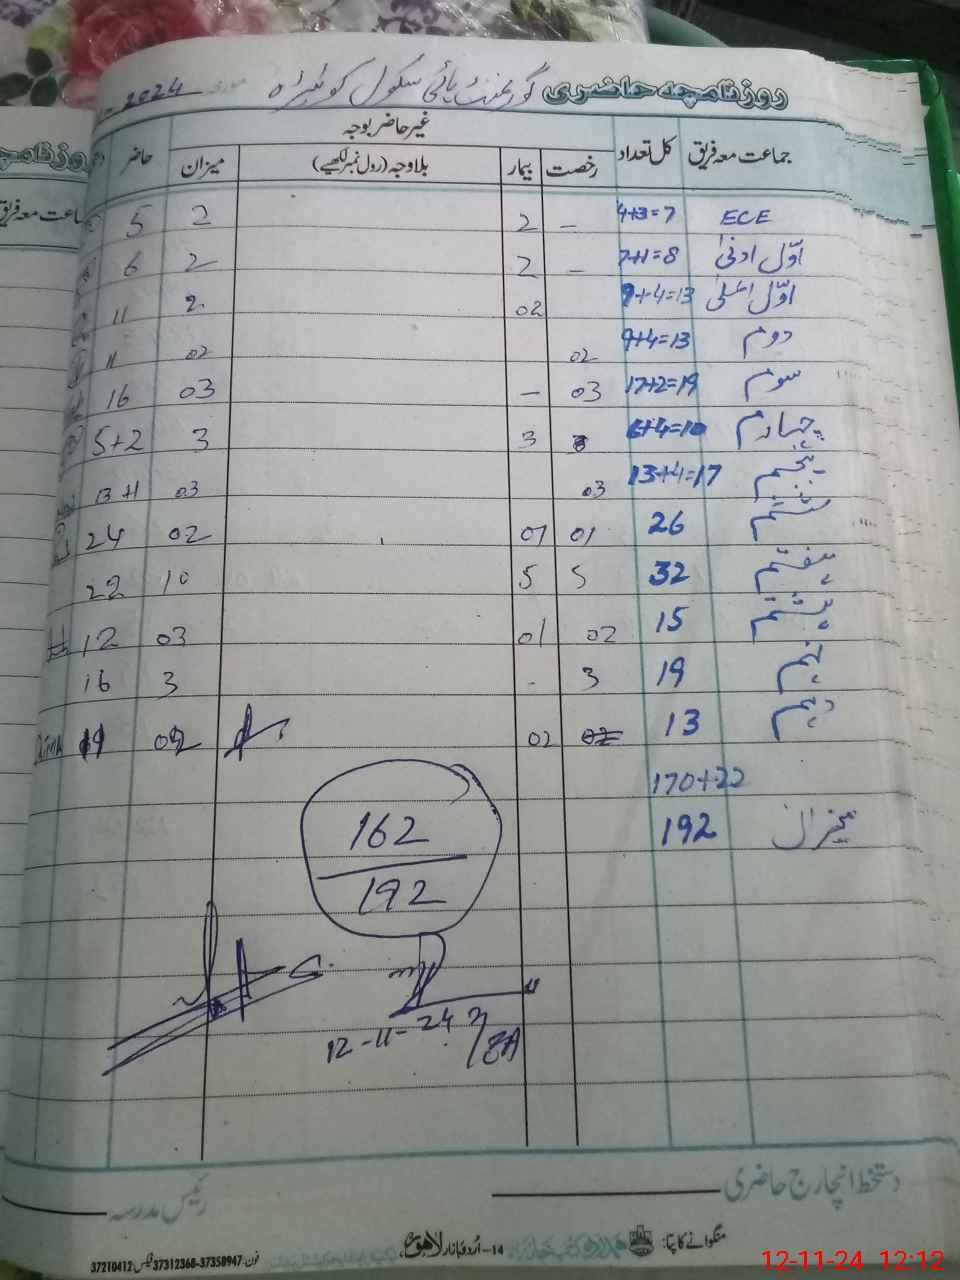 روزنامچہ حاضری گورنمنٹ ہائی سکول مورخہ 2024
جماعت معہ فریق کل تعداد غیر حاضر بوجہ حاضر
رخصت بیمار بلاوجہ (رول نمبر لکھیے) میزان
ECE 4+3=7 – 2 2 5
اوّل ادنیٰ 7+1=8 – 2 2 6
اوّل اعلیٰ 9+4=13 02 2 11
دوم 9+4=13 02 02 11
سوم 17+2=19 03 – 03 16
چہارم 6+4=10 3 3 5+2
پنجم 13+4=17 03 03 13+1
ششم 26 01 01 02 24
ہفتم 32 5 5 10 22
ہشتم 15 02 01 03 12
نہم 19 3 - 3 16
دہم 13 02 02
170+22
میزان 192
162
192
12-11-24
دستخط انچارج حاضری رئیس مدرسہ
منگوانے کا پتا:
14-اُردو بازار لاہور
فون:37358947-37312368 فیکس:37210412
12-11-24 12:12
روزنامچہ
جماعت معہ فریق